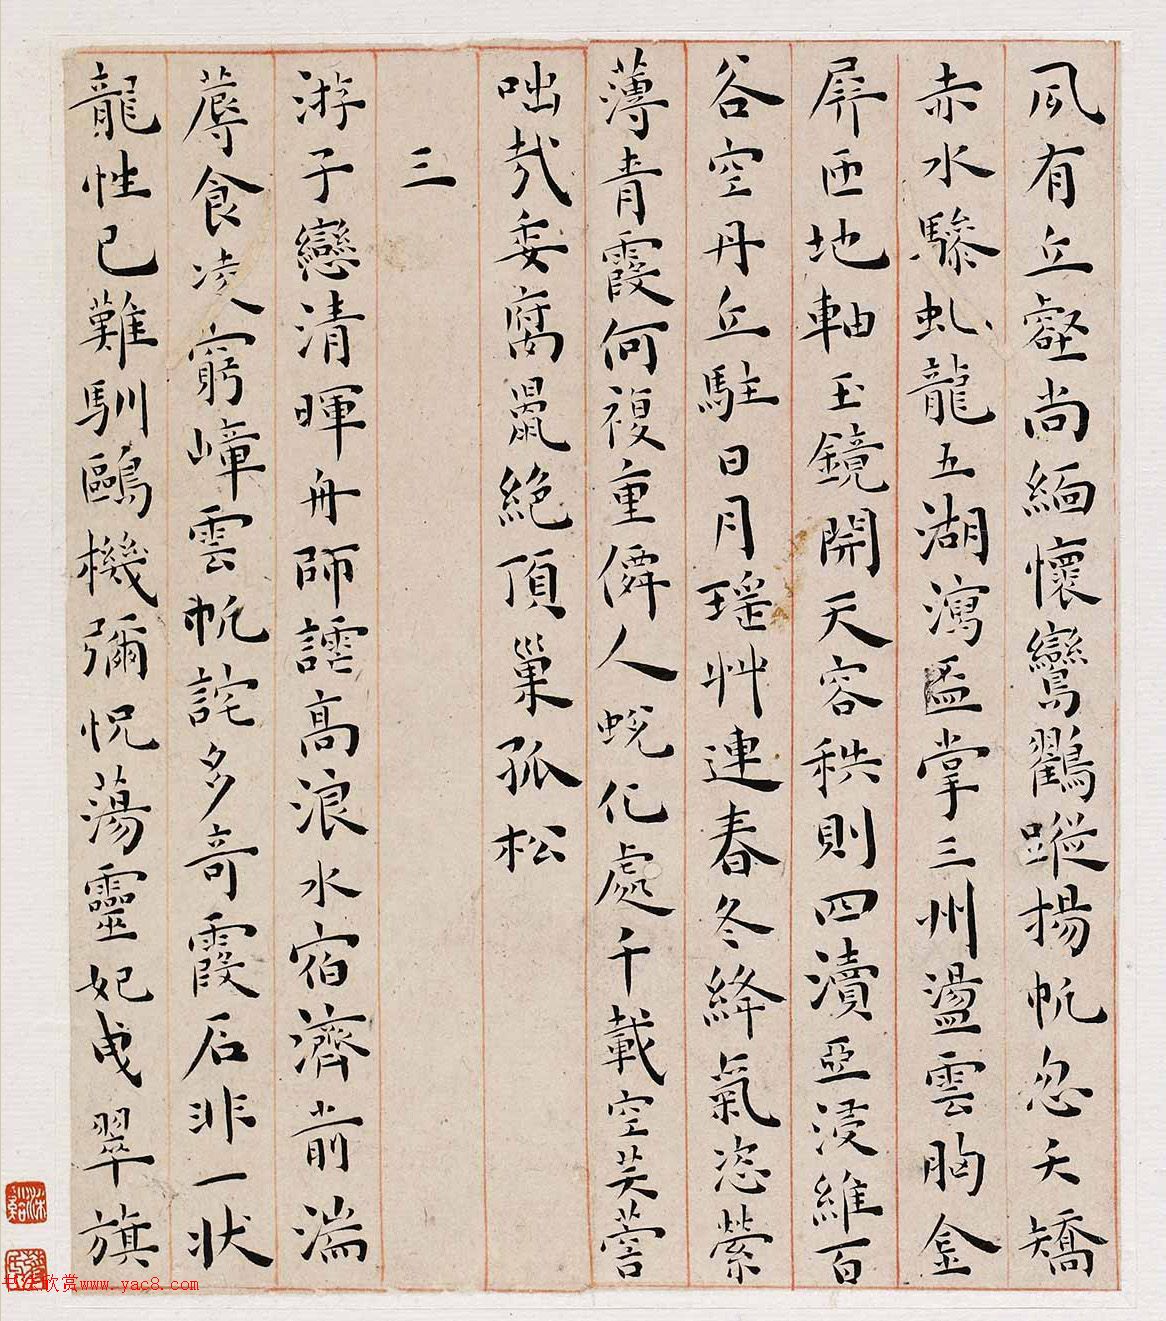 風有丘壑尚緬懷鸞鸛蹤揚帆忽夭矯
赤水驂虬龍五湖瀉盈掌三州盪雲胸金
屏匝地軸玉鏡開天容秩則四瀆亞浸維百
谷空丹丘駐日月瑤艸連春冬絳氣恣縈
薄青霞何複重僊人蛻化處千載空芙蓉
咄哉委腐鼠絶頂巢孤松
三
游子戀清暉舟師譚高浪水宿濟前湍
蓐食凌窮嶂雲帆詫多奇霞石非一狀
龍性已難馴鷗機彌怳蕩靈妃曳翠旗
书法欣赏www.yac8.com